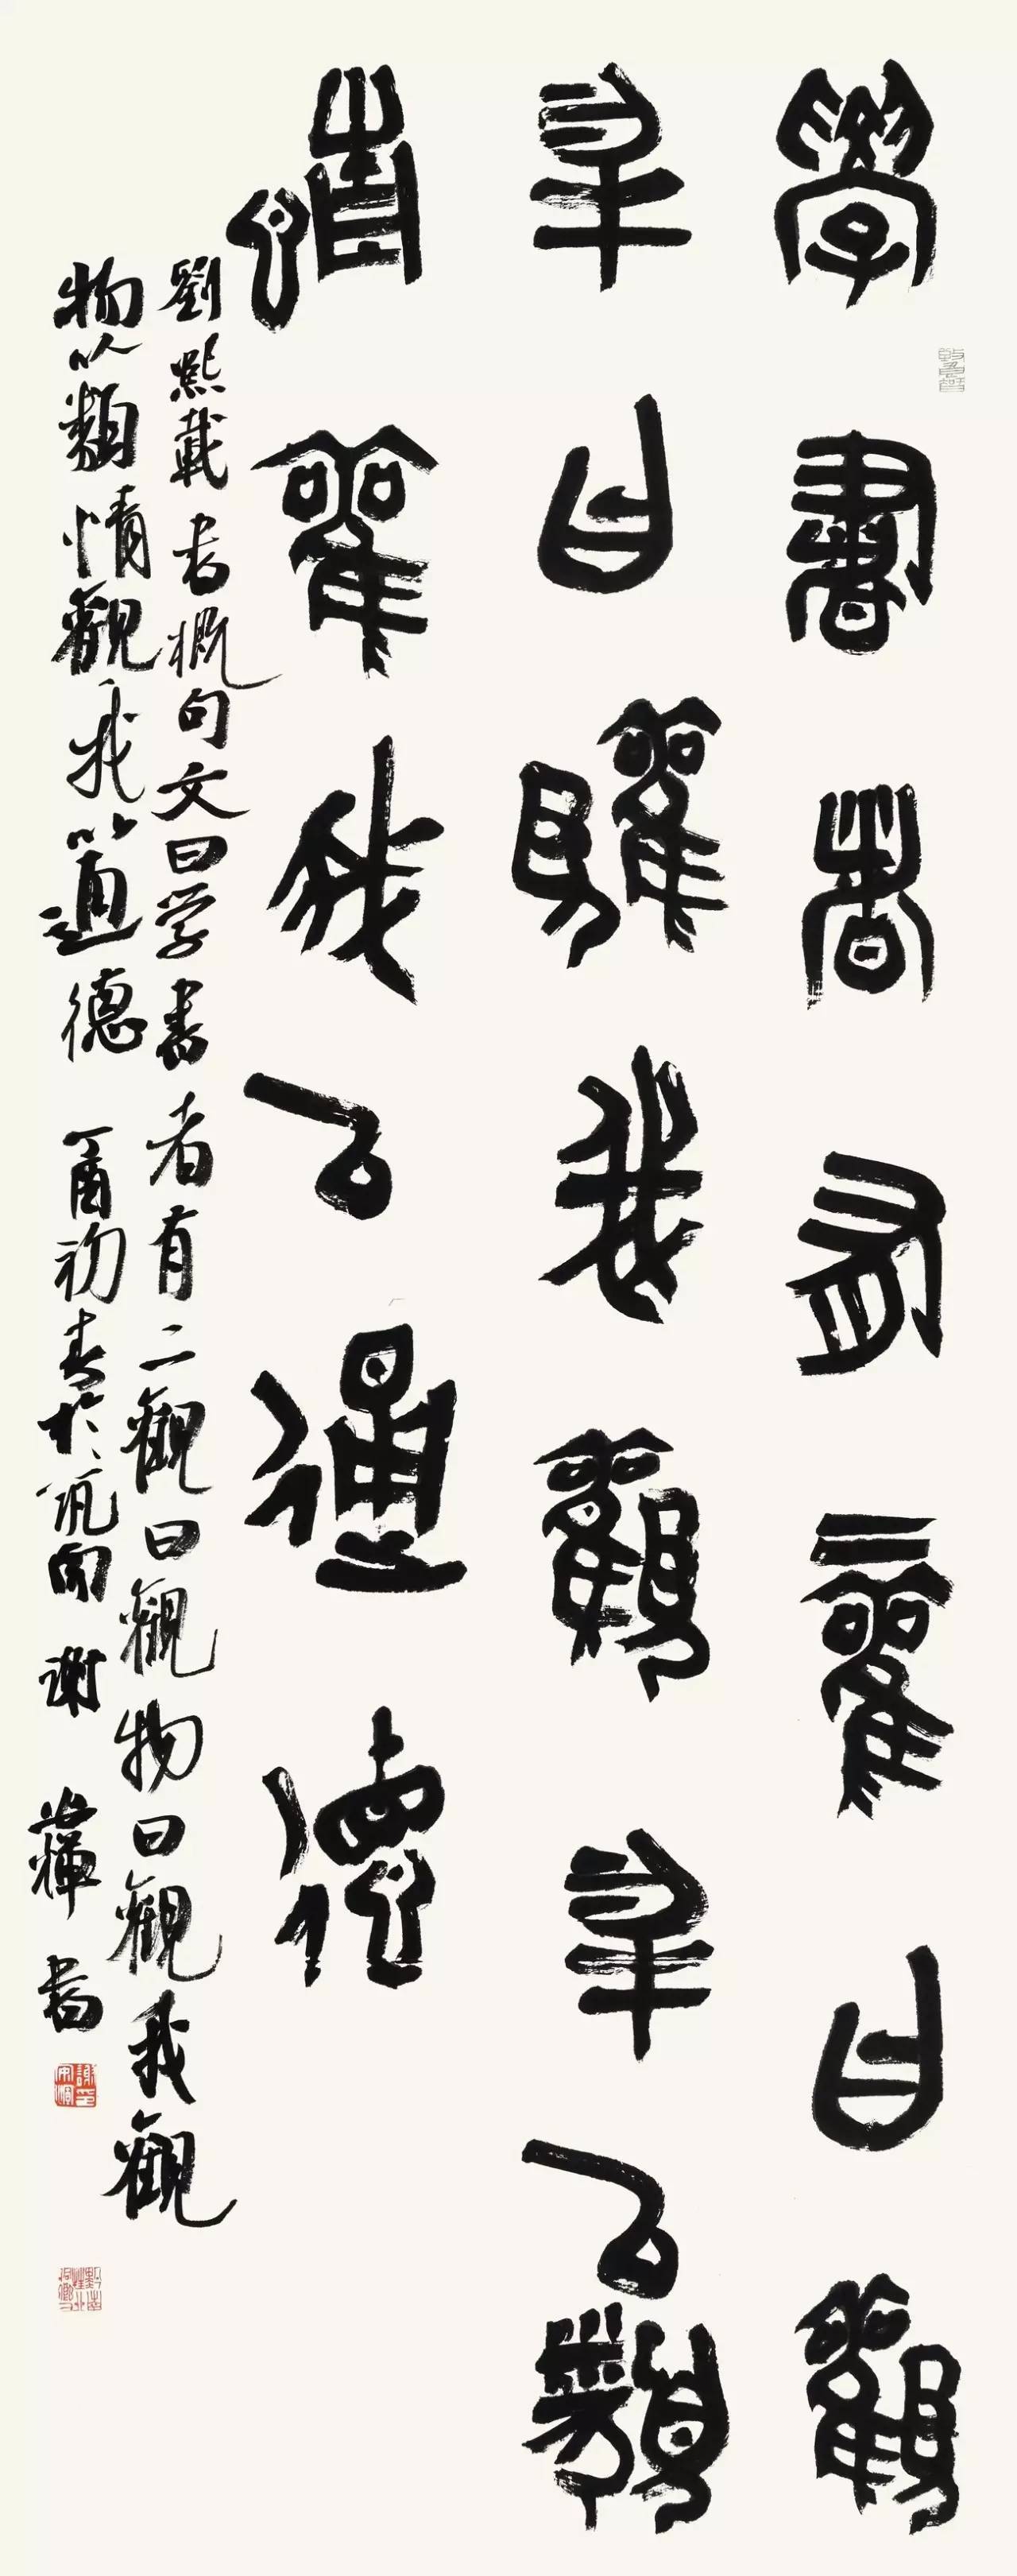 學書者有二觀曰觀
物曰觀我觀物以類
情觀我以通德
劉熙載書概句文曰学書者有二觀曰觀物曰觀我觀
物以類情觀我以通德 丁酉初春於 謝 書